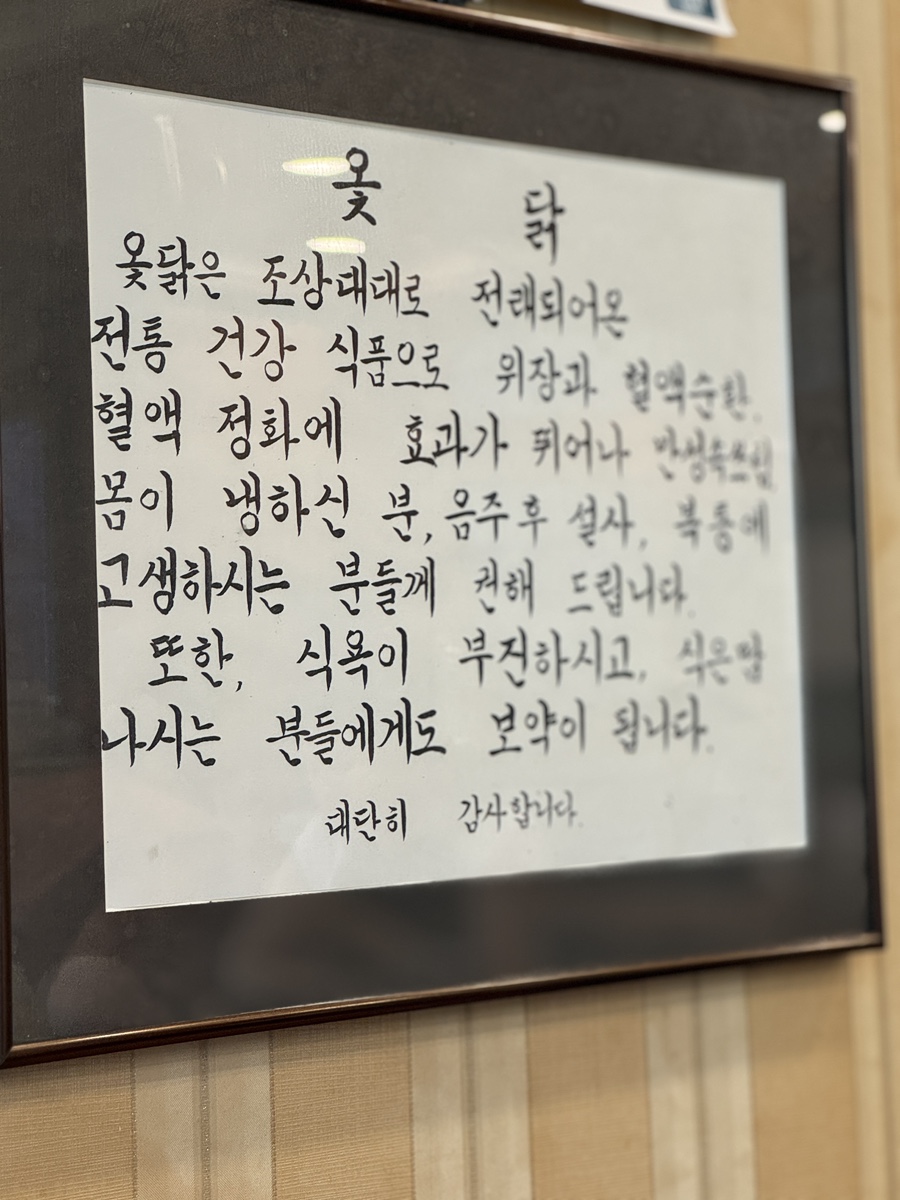 옻 닭
옻닭은 조상대대로 전래되어온
전통 건강 식품으로 위장과 혈액순환,
혈액 정화에 효과가 뛰어나 만성속쓰림,
몸이 냉하신 분, 음주후 설사, 복통에
고생하시는 분들께 권해 드립니다.
또한, 식욕이 부진하시고, 식은땀
나시는 분들에게도 보약이 됩니다.
대단히 감사합니다.